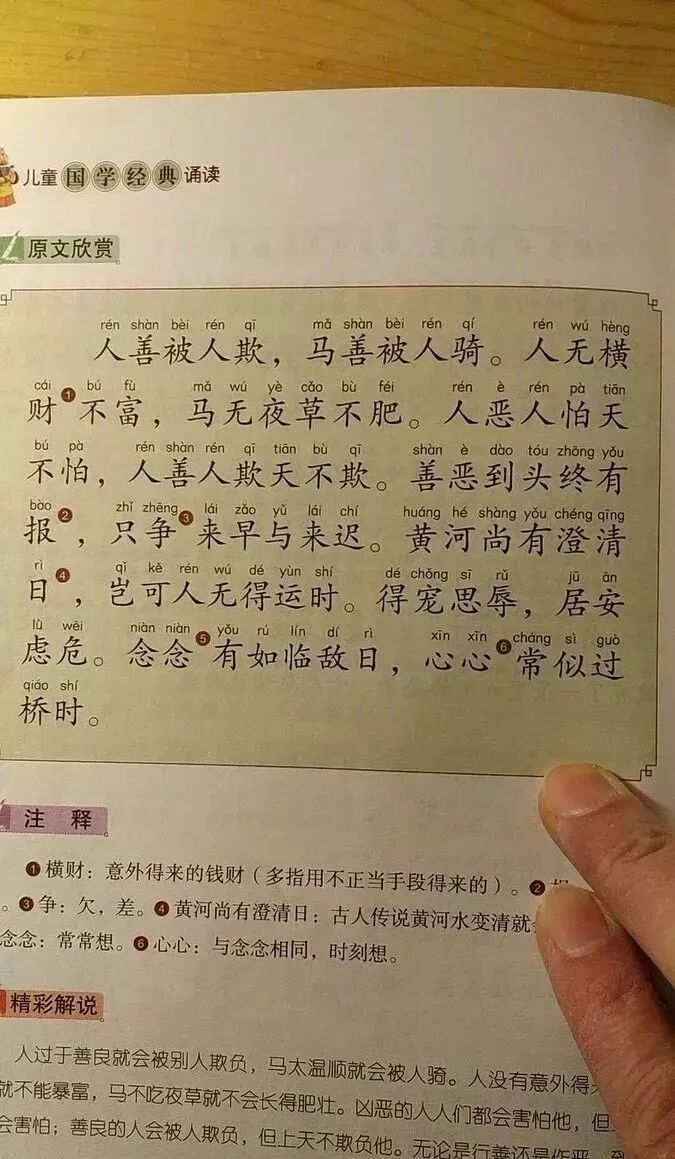 儿童国学经典诵读
原文欣赏
rén shàn bèi rén qī mǎ shàn bèi rén qí rén wú hèng
人善被人欺，马善被人骑。人无横
cái bú fù mǎ wú yè cǎo bù féi rén è rén pà tiān
财❶不富，马无夜草不肥。人恶人怕天
bú pà rén shàn rén qī tiān bù qī shàn è dào tóu zhōng yǒu
不怕，人善人欺天不欺。善恶到头终有
bào zhǐ zhēng lái zǎo yǔ lái chí huáng hé shàng yǒu chéng qīng
报❷，只争❸来早与来迟。黄河尚有澄清
rì qǐ kě rén wú dé yùn shí dé chǒng sī rǔ jū ān
日❹，岂可人无得运时。得宠思辱，居安
lǜ wēi niàn niàn yǒu rú lín dí rì xīn xīn cháng sì guò
虑危。念念❺有如临敌日，心心❻常似过
qiáo shí
桥时。
注 释
❶横财：意外得来的钱财（多指用不正当手段得来的）。❷
。❸争：欠，差。❹黄河尚有澄清日：古人传说黄河水变清就
念念：常常想。❻心心：与念念相同，时刻想。
精彩解说
人过于善良就会被别人欺负，马太温顺就会被人骑。人没有意外得
就不能暴富，马不吃夜草就不会长得肥壮。凶恶的人人们都会害怕他，但
会害怕；善良的人会被人欺负，但上天不欺负他。无论是行善还是作恶，到